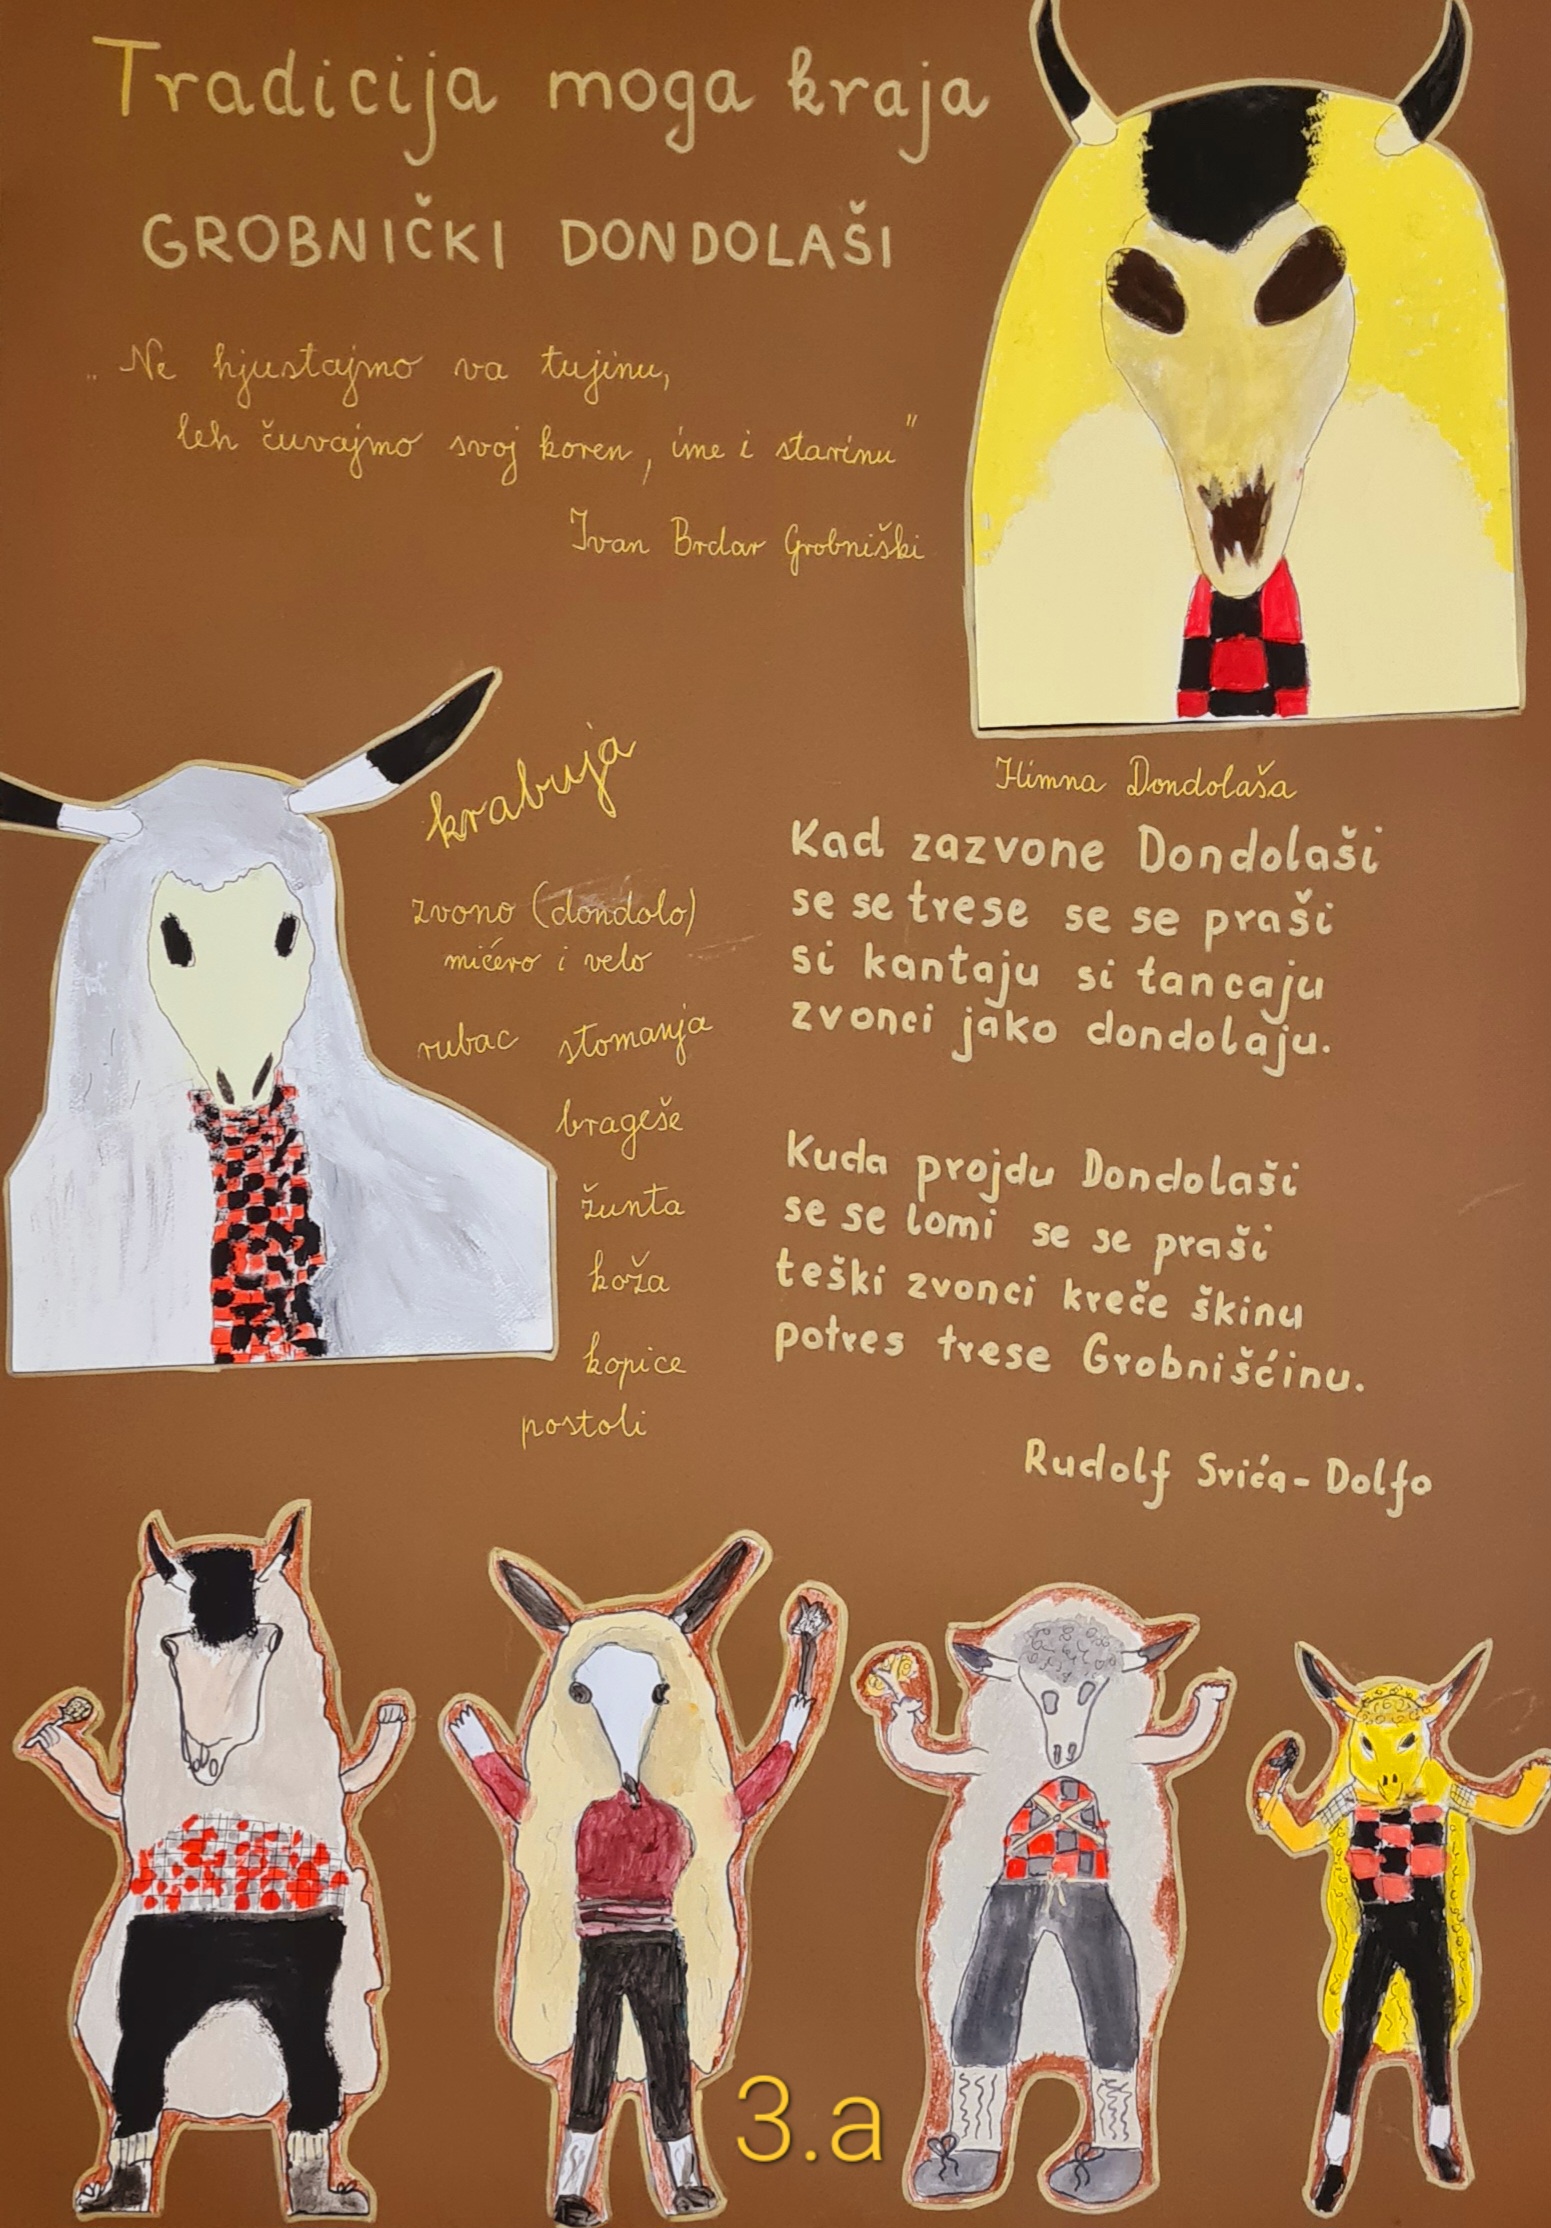 Tradicija moga kraja
GROBNIČKI DONDOLAŠI
„Ne hjustajmo va tujinu,
leh čuvajmo svoj koren, ime i starinu"
Ivan Brdar Grobniški
krabuja
zvono (dondolo)
mićero i velo
rubac stomanja
brageše
žunta
koža
kopice
postoli
Himna Dondolaša
Kad zazvone Dondolaši
se se trese se se praši
si kantaju si tancaju
zvonci jako dondolaju.
Kuda projdu Dondolaši
se se lomi se se praši
teški zvonci kreče škinu
potres trese Grobnišćinu.
Rudolf Svića-Dolfo
3.a